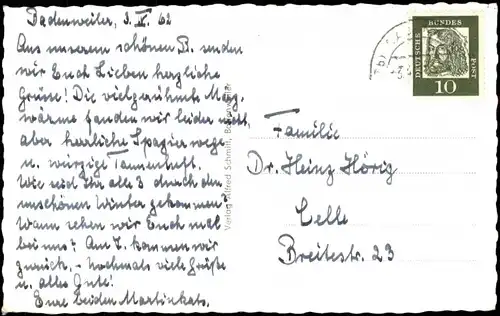 Badenweiler, 3. V. 62
Aus unserem schönen B. senden
wir Euch Lieben herzliche
Grüsse! Die vielgerühmte Mag.
wärme fanden wir leider nicht,
aber herrliche Spazierwege
u. würzige Tannenluft.
Wie seid Ihr alle 3 durch den
unschönen Winter gekommen?
Wann sehen wir Euch mal
bei uns? Am 7. kommen wir
zurück. - Nochmals viele Grüße
u. alles Gute!
Eure beiden Martinkats.
Verlag Alfred Schmitt, Badenweiler
DEUTSCHE
BUNDES
POST
10
Familie
Dr. Heinz Hörig
Celle
Breitestr. 23